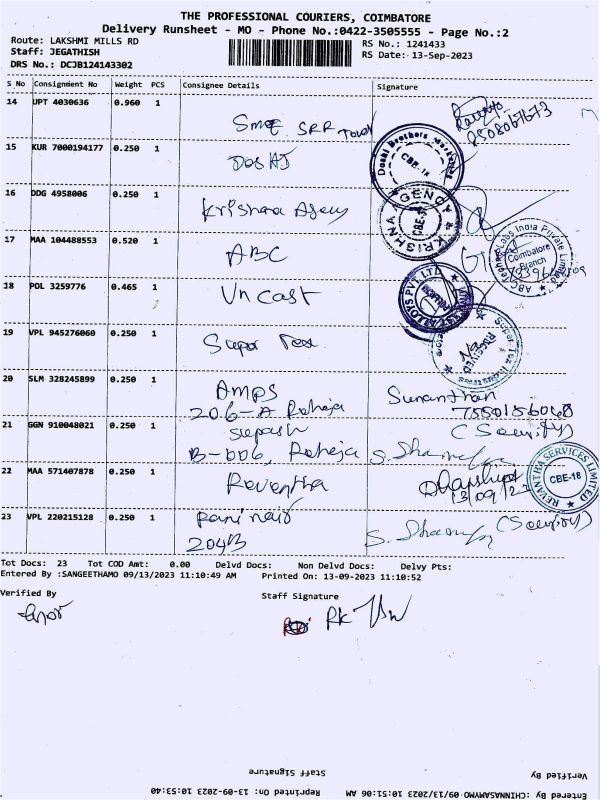 THE PROFESSIONAL COURIERS, COIMBATORE
Delivery Runsheet - MO - Phone No.:0422-3505555 - Page No.:2
Route: LAKSHMI MILLS RD RS No.: 1241433
Staff: JEGATHISH RS Date: 13-Sep-2023
DRS No.: DCJB124143302
S No Consignment No Weight PCS Consignee Details Signature
14 UPT 4030636 0.960 1 SRR
15 KUR 7000194177 0.250 1 Doshi Brothers CBE-18
16 DDG 4958006 0.250 1 Krishna Agency KRISHNA AGENCY
17 MAA 104488553 0.520 1 ABC India Private Limited Coimbatore Branch
18 POL 3259776 0.465 1 Un cast ALLOYS PVT LTD
19 VPL 945276060 0.250 1 Super Tex Super Tex
20 SLM 328245899 0.250 1 Amps
206-A Raheja
21 GGN 910048021 0.250 1 (Security)
B-006, Raheja S.
22 MAA 571407878 0.250 1 Revantha 13/09/23 REVANTHA SERVICES LIMITED CBE-18
23 VPL 220215128 0.250 1 (Security)
204B S.
Tot Docs: 23 Tot COD Amt: 0.00 Delvd Docs: Non Delvd Docs: Delvy Pts:
Entered By :SANGEETHAMO 09/13/2023 11:10:49 AM Printed On: 13-09-2023 11:10:52
Verified By Staff Signature
RK
Staff Signature
Verified By
Entered By :CHINNASAMYMO 09/13/2023 10:51:06 AM Reprinted On: 13-09-2023 10:53:40